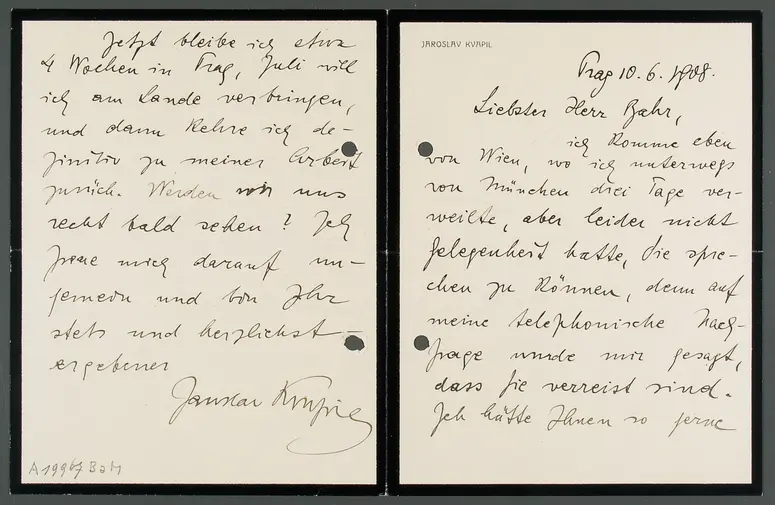 JAROSLAV KVAPIL
Prag 10. 6. 1908.
Liebster Herr Bahr,
ich komme eben
von Wien, wo ich unterwegs
von München drei Tage ver-
weilte, aber leider nicht
Gelegenheit hatte, Sie spre-
chen zu können, denn auf
meine telephonische Nach-
frage wurde mir gesagt,
dass Sie verreist sind.
Ich hätte Ihnen so gerne
Jetzt bleibe ich etwa
4 Wochen in Prag, Juli will
ich am Lande verbringen,
und dann kehre ich de-
finitiv zu meiner Arbeit
zurück. Werden wir uns
recht bald sehen? Ich
freue mich darauf un-
gemein und bin Ihr
stets und herzlichst
ergebener
Jaroslav Kvapil
A 19967 BaM